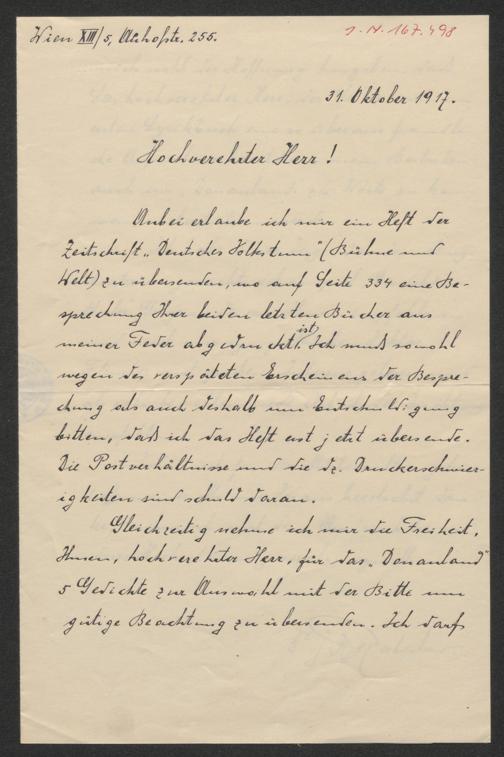 Wien XIII/5, Auhofstr. 255.
I. N. 167.498
31. Oktober 1917.
Hochverehrter Herr!
Anbei erlaube ich mir ein Heft der
Zeitschrift „Deutsches Volkstum" (Bühne und
Welt) zu übersenden, wo auf Seite 334 eine Be-
sprechung Ihrer beiden letzten Bücher aus
meiner Feder abgedruckt ist. Ich muß sowohl
wegen des verspäteten Erscheinens der Bespre-
chung als auch deshalb um Entschuldigung
bitten, daß ich das Heft erst jetzt übersende.
Die Postverhältnisse und die dz. Druckerschwier-
igkeiten sind schuld daran.
Gleichzeitig nehme ich mir die Freiheit,
Ihnen, hochverehrter Herr, für das „Donauland"
5 Gedichte zur Auswahl mit der Bitte um
gütige Beachtung zu übersenden. Ich darf